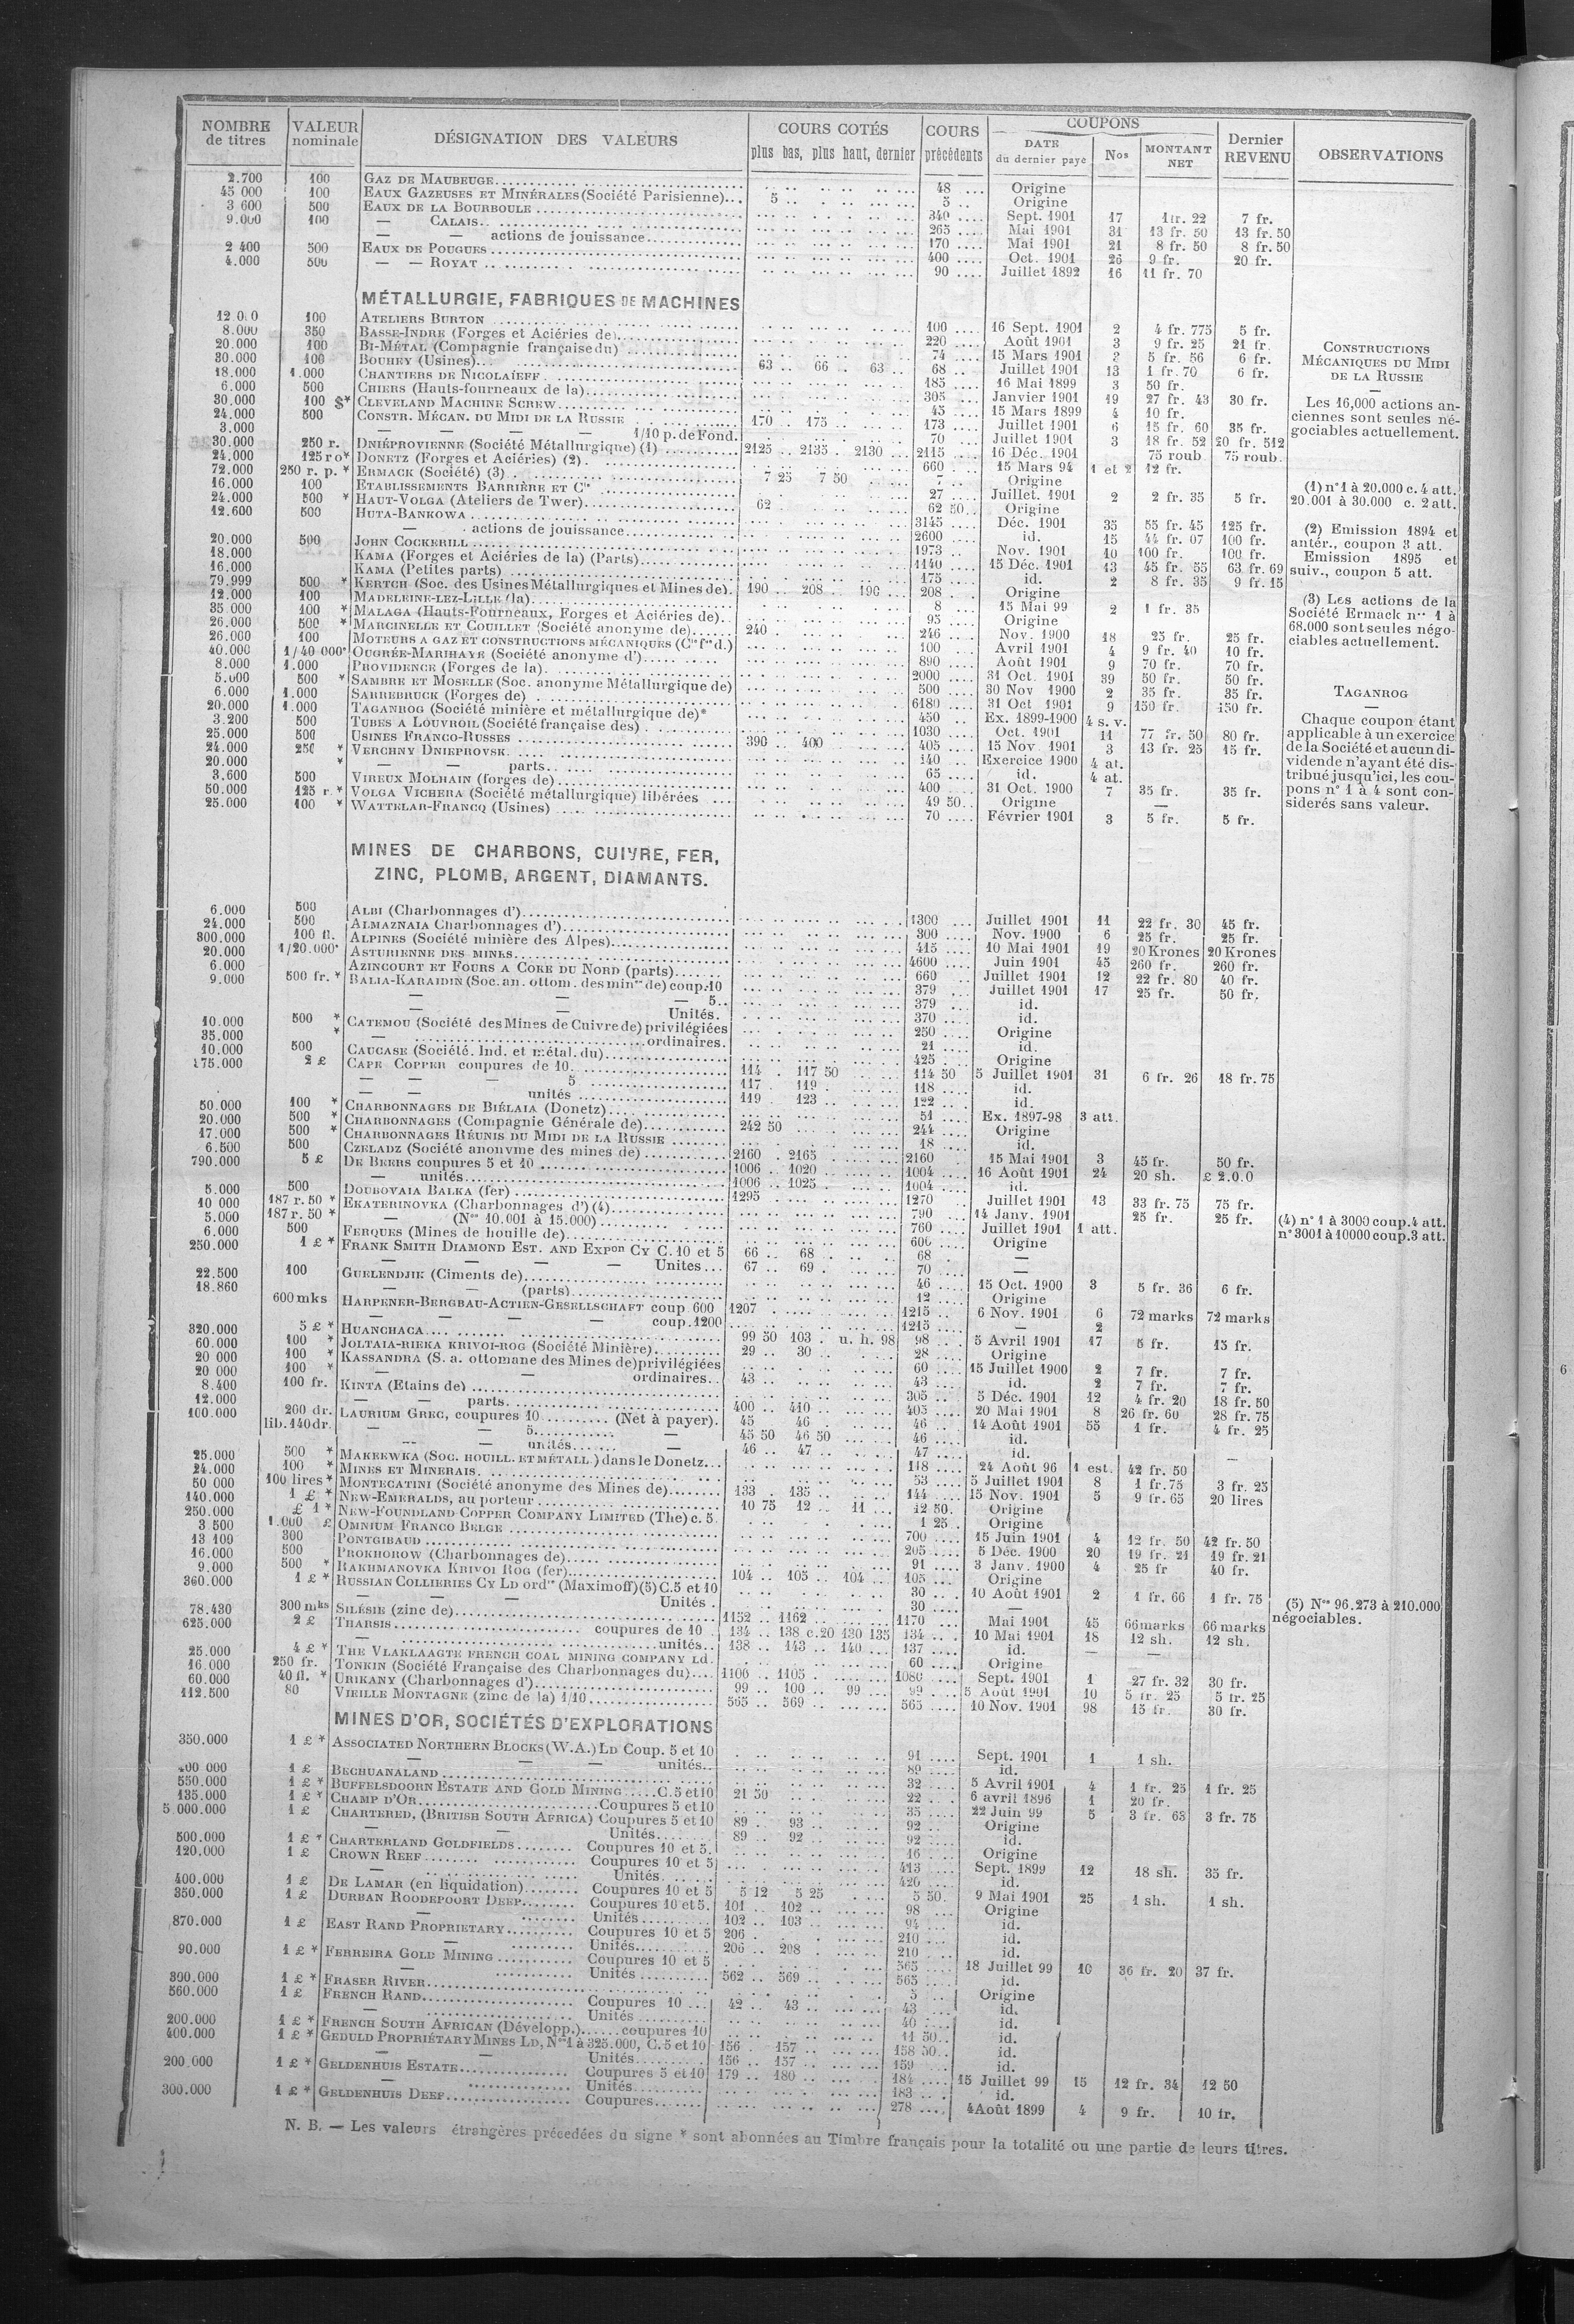 NOMBRE de titres | VALEUR nominale | DÉSIGNATION DES VALEURS | COURS COTÉS plus bas, plus haut, dernier | COURS précédents | COUPONS DATE du dernier payé | Nos | MONTANT NET | Dernier REVENU | OBSERVATIONS
2.700 | 100 | GAZ DE MAUBEUGE | 48 | Origine
45 000 | 100 | EAUX GAZEUSES ET MINÉRALES (Société Parisienne) | 5 | 5 | Origine
3 600 | 500 | EAUX DE LA BOURBOULE | 340 | Sept. 1901 | 17 | 1 fr. 22 | 7 fr.
9.000 | 100 | — CALAIS | 265 | Mai 1901 | 31 | 13 fr. 50 | 13 fr. 50
— — actions de jouissance | 170 | Mai 1901 | 21 | 8 fr. 50 | 8 fr. 50
2 400 | 500 | EAUX DE POUGUES | 400 | Oct. 1901 | 26 | 9 fr. | 20 fr.
4.000 | 500 | — — ROYAT | 90 | Juillet 1892 | 16 | 11 fr. 70
MÉTALLURGIE, FABRIQUES DE MACHINES
12.000 | 100 | ATELIERS BURTON | 100 | 16 Sept. 1901 | 2 | 4 fr. 775 | 5 fr.
8.000 | 350 | BASSE-INDRE (Forges et Aciéries de) | 220 | Août 1901 | 3 | 9 fr. 25 | 21 fr.
20.000 | 100 | BI-MÉTAL (Compagnie française du) | 74 | 15 Mars 1901 | 3 | 5 fr. 56 | 6 fr.
30.000 | 100 | BOUHEY (Usines) | 63 | 66 | 63 | 68 | Juillet 1901 | 13 | 1 fr. 70 | 6 fr.
18.000 | 1.000 | CHANTIERS DE NICOLAÏEFF | 185 | 16 Mai 1899 | 3 | 50 fr.
6.000 | 500 | CHIERS (Hauts-fourneaux de la) | 305 | Janvier 1901 | 19 | 27 fr. 43 | 30 fr.
30.000 | 100 $* | CLEVELAND MACHINE SCREW | 45 | 15 Mars 1899 | 4 | 10 fr.
24.000 | 500 | CONSTR. MÉCAN. DU MIDI DE LA RUSSIE | 170 | 175 | 173 | Juillet 1901 | 6 | 15 fr. 60 | 35 fr.
3.000 | — — — 1/10 p. de Fond. | 70 | Juillet 1901 | 3 | 18 fr. 52 | 20 fr. 512
30.000 | 250 r. | DNIÉPROVIENNE (Société Métallurgique) (1) | 2125 | 2135 | 2130 | 2115 | 16 Déc. 1901 | 75 roub | 75 roub.
24.000 | 125 ro* | DONETZ (Forges et Aciéries) (2) | 660 | 15 Mars 94 | 1 et 2 | 12 fr.
72.000 | 250 r. p. * | ERMACK (Société) (3) | 7 25 | 7 50 | 7 | Origine
16.000 | 100 | ETABLISSEMENTS BARRIÈRE ET Cie | 27 | Juillet. 1901 | 2 | 2 fr. 35 | 5 fr.
24.000 | 500 * | HAUT-VOLGA (Ateliers de Twer) | 62 | 62 50 | Origine
12.600 | 500 | HUTA-BANKOWA | 3145 | Déc. 1901 | 35 | 55 fr. 45 | 125 fr.
— actions de jouissance | 2600 | id. | 15 | 44 fr. 07 | 100 fr.
20.000 | 500 | JOHN COCKERILL | 1973 | Nov. 1901 | 10 | 100 fr. | 100 fr.
18.000 | KAMA (Forges et Aciéries de la) (Parts) | 1140 | 15 Déc. 1901 | 13 | 45 fr. 55 | 63 fr. 69
16.000 | KAMA (Petites parts) | 175 | id. | 2 | 8 fr. 35 | 9 fr. 15
79.999 | 500 * | KERTCH (Soc. des Usines Métallurgiques et Mines de) | 190 | 208 | 190 | 208 | Origine
12.000 | 100 | MADELEINE-LEZ-LILLE (la) | 8 | 15 Mai 99 | 2 | 1 fr. 35
35 000 | 100 * | MALAGA (Hauts-Fourneaux, Forges et Aciéries de) | 95 | Origine
26.000 | 500 * | MARCINELLE ET COUILLET (Société anonyme de) | 240 | 246 | Nov. 1900 | 18 | 25 fr. | 25 fr.
26.000 | 100 | MOTEURS A GAZ ET CONSTRUCTIONS MÉCANIQUES (Cie fse d.) | 100 | Avril 1901 | 4 | 9 fr. 40 | 10 fr.
40.000 | 1/40 000e | OUGRÉE-MARIHAYE (Société anonyme d') | 890 | Août 1901 | 9 | 70 fr. | 70 fr.
8.000 | 1.000 | PROVIDENCE (Forges de la) | 2000 | 31 Oct. 1901 | 39 | 50 fr. | 50 fr.
5.000 | 500 * | SAMBRE ET MOSELLE (Soc. anonyme Métallurgique de) | 500 | 30 Nov 1900 | 2 | 35 fr. | 35 fr.
6.000 | 1.000 | SARREBRUCK (Forges de) | 6180 | 31 Oct 1901 | 9 | 150 fr. | 150 fr.
20.000 | 1.000 | TAGANROG (Société minière et métallurgique de)* | 450 | Ex. 1899-1900 | 4 s. v.
3.200 | 500 | TUBES A LOUVROIL (Société française des) | 1030 | Oct. 1901 | 11 | 77 fr. 50 | 80 fr.
25.000 | 500 | USINES FRANCO-RUSSES | 390 | 400 | 405 | 15 Nov. 1901 | 3 | 13 fr. 25 | 15 fr.
24.000 | 250 * | VERCHNY DNIEPROVSK | 140 | Exercice 1900 | 4 at.
20.000 | * | — — parts | 65 | id. | 4 at.
3.600 | 500 | VIREUX MOLHAIN (forges de) | 400 | 31 Oct. 1900 | 7 | 35 fr. | 35 fr.
50.000 | 125 r. * | VOLGA VICHERA (Société métallurgique) libérées | 49 50 | Origine | —
25.000 | 100 * | WATTELAR-FRANCQ (Usines) | 70 | Février 1901 | 3 | 5 fr. | 5 fr.
CONSTRUCTIONS
MÉCANIQUES DU MIDI
DE LA RUSSIE
Les 16,000 actions an-
ciennes sont seules né-
gociables actuellement.
(1) n° 1 à 20.000 c. 4 att.
20.001 à 30.000 c. 2 att.
(2) Emission 1894 et
antér., coupon 3 att.
Emission 1895 et
suiv., coupon 5 att.
(3) Les actions de la
Société Ermack nos 1 à
68.000 sont seules négo-
ciables actuellement.
TAGANROG
Chaque coupon étant
applicable à un exercice
de la Société et aucun di-
vidende n'ayant été dis-
tribué jusqu'ici, les cou-
pons n° 1 à 4 sont con-
sidérés sans valeur.
MINES DE CHARBONS, CUIVRE, FER,
ZINC, PLOMB, ARGENT, DIAMANTS.
6.000 | 500 | ALBI (Charbonnages d') | 1300 | Juillet 1901 | 11 | 22 fr. 30 | 45 fr.
24.000 | 500 | ALMAZNAIA Charbonnages d') | 300 | Nov. 1900 | 6 | 25 fr. | 25 fr.
300.000 | 100 fl. | ALPINES (Société minière des Alpes) | 415 | 10 Mai 1901 | 19 | 20 Krones | 20 Krones
20.000 | 1/20.000e | ASTURIENNE DES MINES | 4600 | Juin 1901 | 45 | 260 fr. | 260 fr.
6.000 | AZINCOURT ET FOURS A COKE DU NORD (parts) | 660 | Juillet 1901 | 12 | 22 fr. 80 | 40 fr.
9.000 | 500 fr. * | BALIA-KARAIDIN (Soc. an. ottom. des mines de) coup. 10 | 379 | Juillet 1901 | 17 | 25 fr. | 50 fr.
— — — 5 | 379 | id.
— — Unités. | 370 | id.
10.000 | 500 * | CATEMOU (Société des Mines de Cuivre de) privilégiées | 250 | Origine
35.000 | * | — ordinaires. | 21 | id.
10.000 | 500 | CAUCASE (Société. Ind. et métal. du) | 425 | Origine
175.000 | 2 £ | CAPE COPPER coupures de 10. | 114 | 117 50 | 114 50 | 5 Juillet 1901 | 31 | 6 fr. 26 | 18 fr. 75
— — — 5 | 117 | 119 | 118 | id.
— — unités | 119 | 123 | 122 | id.
50.000 | 100 * | CHARBONNAGES DE BIÉLAIA (Donetz) | 51 | Ex. 1897-98 | 3 att.
20.000 | 500 * | CHARBONNAGES (Compagnie Générale de) | 242 50 | 244 | Origine
17.000 | 500 * | CHARBONNAGES RÉUNIS DU MIDI DE LA RUSSIE | 18 | id.
6.500 | 500 | CZELADZ (Société anonyme des mines de) | 2160 | 2165 | 2160 | 15 Mai 1901 | 3 | 45 fr. | 50 fr.
790.000 | 5 £ | DE BEERS coupures 5 et 10 | 1006 | 1020 | 1004 | 16 Août 1901 | 24 | 20 sh. | £ 2.0.0
— unités | 1006 | 1025 | 1004 | id.
5.000 | 500 | DOUBOVAIA BALKA (fer) | 1295 | 1270 | Juillet 1901 | 13 | 33 fr. 75 | 75 fr.
10 000 | 187 r. 50 * | EKATERINOVKA (Charbonnages d') (4) | 790 | 14 Janv. 1901 | 25 fr. | 25 fr.
5.000 | 187 r. 50 * | — (Nos 10.001 à 15.000) | 760 | Juillet 1901 | 1 att.
6.000 | 500 | FERQUES (Mines de houille de) | 600 | Origine
250.000 | 1 £ * | FRANK SMITH DIAMOND EST. AND EXPon CY C. 10 et 5 | 66 | 68 | 68 | —
— — — — Unites | 67 | 69 | 70 | —
22.500 | 100 | GUELENDJIK (Ciments de) | 46 | 15 Oct. 1900 | 3 | 5 fr. 36 | 6 fr.
18.860 | — — (parts) | 12 | Origine
600 mks | HARPENER-BERGBAU-ACTIEN-GESELLSCHAFT coup 600 | 1207 | 1215 | 6 Nov. 1901 | 6 | 72 marks | 72 marks
— — — — coup. 1200 | 1215 | — | 2
320.000 | 5 £ * | HUANCHACA | 99 50 | 103 | u. h. 98 | 98 | 5 Avril 1901 | 17 | 5 fr. | 15 fr.
60.000 | 100 * | JOLTAIA-RIEKA KRIVOI-ROG (Société Minière) | 29 | 30 | 28 | Origine
20 000 | 100 * | KASSANDRA (S. a. ottomane des Mines de) privilégiées | 60 | 15 Juillet 1900 | 2 | 7 fr. | 7 fr.
20 000 | 100 * | — — ordinaires | 43 | 43 | id. | 2 | 7 fr. | 7 fr.
8.400 | 100 fr. | KINTA (Etains de) | 305 | 5 Déc. 1901 | 12 | 4 fr. 20 | 18 fr. 50
12.000 | — — parts | 400 | 410 | 405 | 20 Mai 1901 | 8 | 26 fr. 60 | 28 fr. 75
100.000 | 200 dr. lib. 140 dr. | LAURIUM GREC, coupures 10 (Net à payer). | 45 | 46 | 46 | 14 Août 1901 | 55 | 1 fr. | 4 fr. 25
— — 5 — | 45 50 | 46 50 | 46 | id.
— — unités — | 46 | 47 | 47 | id. | —
25.000 | 500 * | MAKEEWKA (SOC. HOUILL. ET MÉTALL.) dans le Donetz | 118 | 24 Août 96 | 1 est. | 42 fr. 50
24.000 | 100 * | MINES ET MINERAIS | 53 | 5 Juillet 1901 | 8 | 1 fr. 75 | 3 fr. 25
50 000 | 100 lires * | MONTECATINI (Société anonyme des Mines de) | 133 | 135 | 144 | 15 Nov. 1901 | 5 | 9 fr. 65 | 20 lires
140.000 | 1 £ * | NEW-EMERALDS, au porteur | 10 75 | 12 | 11 | 12 50 | Origine
250.000 | £ 1 * | NEW-FOUNDLAND COPPER COMPANY LIMITED (The) c. 5. | 1 25 | Origine
3 500 | 1.000 £ | OMNIUM FRANCO BELGE | 700 | 15 Juin 1901 | 4 | 12 fr. 50 | 42 fr. 50
13 100 | 300 | PONTGIBAUD | 205 | 5 Déc. 1900 | 20 | 19 fr. 21 | 19 fr. 21
16.000 | 500 | PROKHOROW (Charbonnages de) | 91 | 3 Janv. 1900 | 4 | 25 fr | 40 fr.
9.000 | 500 * | RAKHMANOVKA KRIVOI ROG (fer) | 104 | 105 | 104 | 105 | Origine
360.000 | 1 £ * | RUSSIAN COLLIERIES CY LD ordre (Maximoff) (5) C. 5 et 10 | 30 | 10 Août 1901 | 2 | 1 fr. 66 | 1 fr. 75
— — — Unités | 30 | —
78.430 | 300 mks | SILÉSIE (zinc de) | 1152 | 1162 | 1170 | Mai 1901 | 45 | 66 marks | 66 marks
625.000 | 2 £ | THARSIS coupures de 10 | 134 | 138 c. 20 | 130 135 | 134 | 10 Mai 1901 | 18 | 12 sh. | 12 sh.
— unités | 138 | 143 | 140 | 137 | id. | — | —
25.000 | 4 £ * | THE VLAKLAAGTE FRENCH COAL MINING COMPANY Ld. | 60 | Origine
16.000 | 250 fr. | TONKIN (Société Française des Charbonnages du) | 1100 | 1105 | 1080 | Sept. 1901 | 1 | 27 fr. 32 | 30 fr.
60.000 | 40 fl. * | URIKANY (Charbonnages d') | 99 | 100 | 99 | 99 | 5 Août 1901 | 10 | 5 fr. 25 | 5 fr. 25
112.500 | 80 | VIEILLE MONTAGNE (zinc de la) 1/10 | 565 | 569 | 565 | 10 Nov. 1901 | 98 | 15 fr. | 30 fr.
(4) n° 1 à 3000 coup. 4 att.
n° 3001 à 10000 coup. 3 att.
(5) Nos 96.273 à 210.000
négociables.
MINES D'OR, SOCIÉTÉS D'EXPLORATIONS
350.000 | 1 £ * | ASSOCIATED NORTHERN BLOCKS (W.A.) LD Coup. 5 et 10 | 91 | Sept. 1901 | 1 | 1 sh.
— — — unités | 89 | id.
400 000 | 1 £ | BECHUANALAND | 32 | 5 Avril 1901 | 4 | 1 fr. 25 | 1 fr. 25
550.000 | 1 £ * | BUFFELSDOORN ESTATE AND GOLD MINING C. 5 et 10 | 21 50 | 22 | 6 avril 1896 | 1 | 20 fr.
135.000 | 1 £ * | CHAMP D'OR Coupures 5 et 10 | 35 | 22 Juin 99 | 5 | 3 fr. 63 | 3 fr. 75
5.000.000 | 1 £ | CHARTERED, (BRITISH SOUTH AFRICA) Coupures 5 et 10 | 89 | 93 | 92 | Origine
— — Unités | 89 | 92 | 92 | id.
500.000 | 1 £ * | CHARTERLAND GOLDFIELDS Coupures 10 et 5. | 16 | Origine
120.000 | 1 £ | CROWN REEF Coupures 10 et 5 | 413 | Sept. 1899 | 12 | 18 sh. | 35 fr.
— Unités | 420 | id.
400.000 | 1 £ | DE LAMAR (en liquidation) Coupures 10 et 5 | 5 12 | 5 25 | 5 50 | 9 Mai 1901 | 25 | 1 sh. | 1 sh.
350.000 | 1 £ | DURBAN ROODEPOORT DEEP Coupures 10 et 5. | 101 | 102 | 98 | Origine
— Unités | 102 | 103 | 94 | id.
870.000 | 1 £ | EAST RAND PROPRIETARY Coupures 10 et 5 | 206 | 210 | id.
— Unités | 206 | 208 | 210 | id.
90.000 | 1 £ * | FERREIRA GOLD MINING Coupures 10 et 5 | 565 | 18 Juillet 99 | 10 | 36 fr. 20 | 37 fr.
— Unités | 562 | 569 | 565 | id.
300.000 | 1 £ * | FRASER RIVER | 5 | Origine
560.000 | 1 £ | FRENCH RAND Coupures 10 | 42 | 43 | 43 | id.
— Unités | 40 | id.
200.000 | 1 £ * | FRENCH SOUTH AFRICAN (Développ.) coupures 10 | 11 50 | id.
400.000 | 1 £ * | GEDULD PROPRIÉTARY MINES LD, Nos 1 à 325.000, C. 5 et 10 | 156 | 157 | 158 50 | id.
— Unités | 156 | 157 | 159 | id.
200.000 | 1 £ * | GELDENHUIS ESTATE Coupures 5 et 10 | 179 | 180 | 184 | 15 Juillet 99 | 15 | 12 fr. 34 | 12 50
— Unités | 183 | id.
300.000 | 1 £ * | GELDENHUIS DEEP Coupures | 278 | 4 Août 1899 | 4 | 9 fr. | 10 fr.
N. B. — Les valeurs étrangères précedées du signe * sont abonnées au Timbre français pour la totalité ou une partie de leurs titres.
6